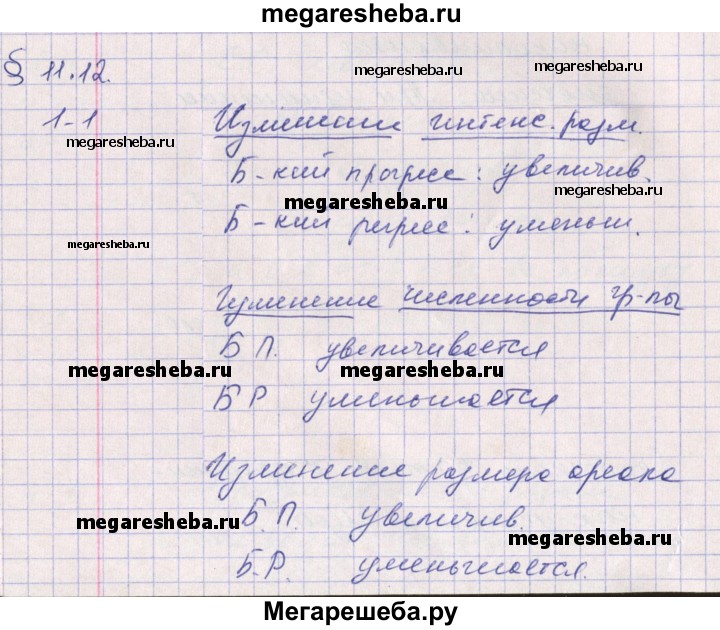 megaresheba.ru
§ 11.12.
megaresheba.ru
megaresheba.ru
1-1
Изменение интенс. разм.
megaresheba.ru
megaresheba.ru
Б-кий прогресс: увеличив.
megaresheba.ru
megaresheba.ru
Б-кий регресс: уменьш.
megaresheba.ru
Изменение численности гр-пы
Б П. увеличивается
megaresheba.ru
megaresheba.ru
Б Р уменьшается
Изменение размера ареала
megaresheba.ru
Б.П. увеличив.
megaresheba.ru
Б.Р. уменьшается.
Мегарешеба.ру